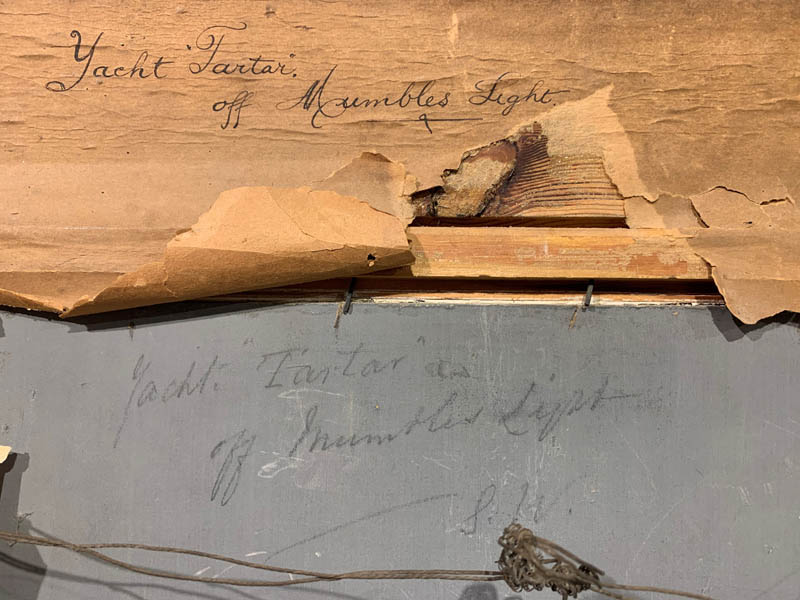 Yacht "Tartar".
off Mumbles Light.
Yacht. "Tartar"
off Mumbles Light
S. W.